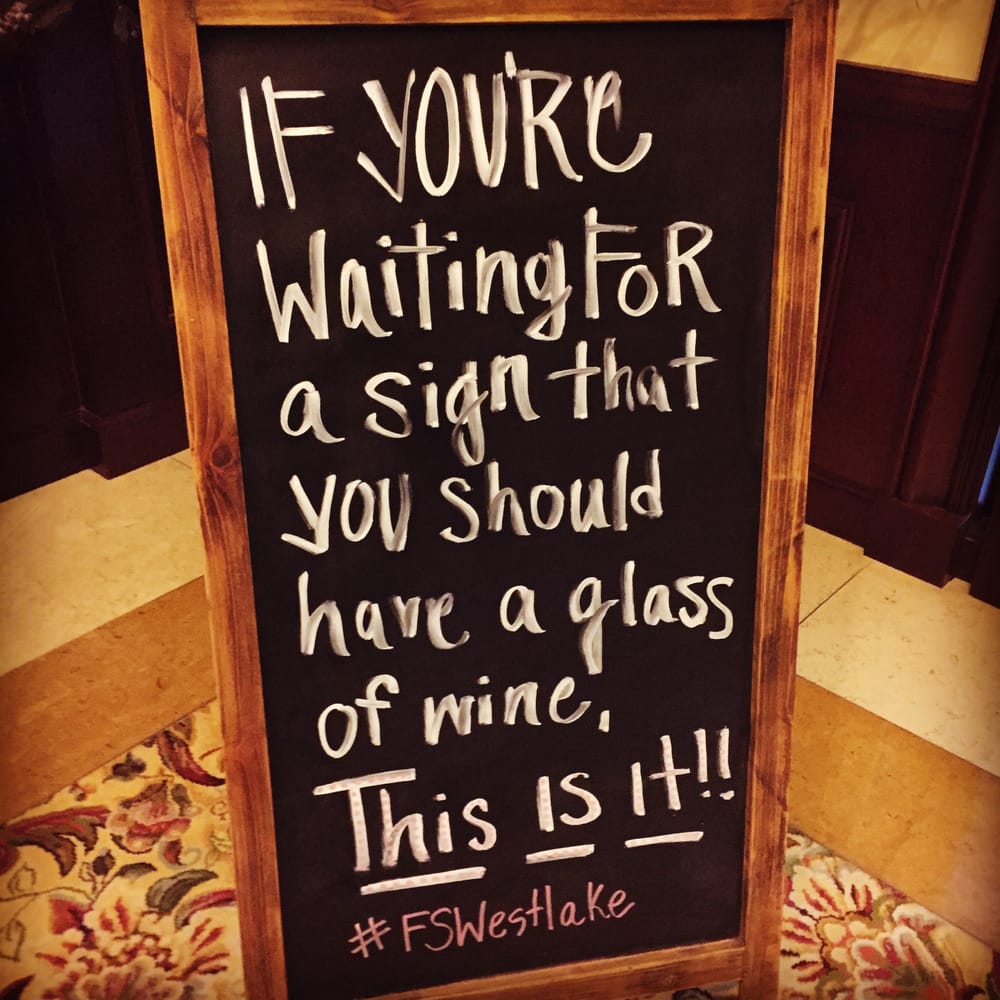 IF YOU'Re
Waiting FoR
a sign that
you should
have a glass
of wine,
This IS It!!
#FSWestlake